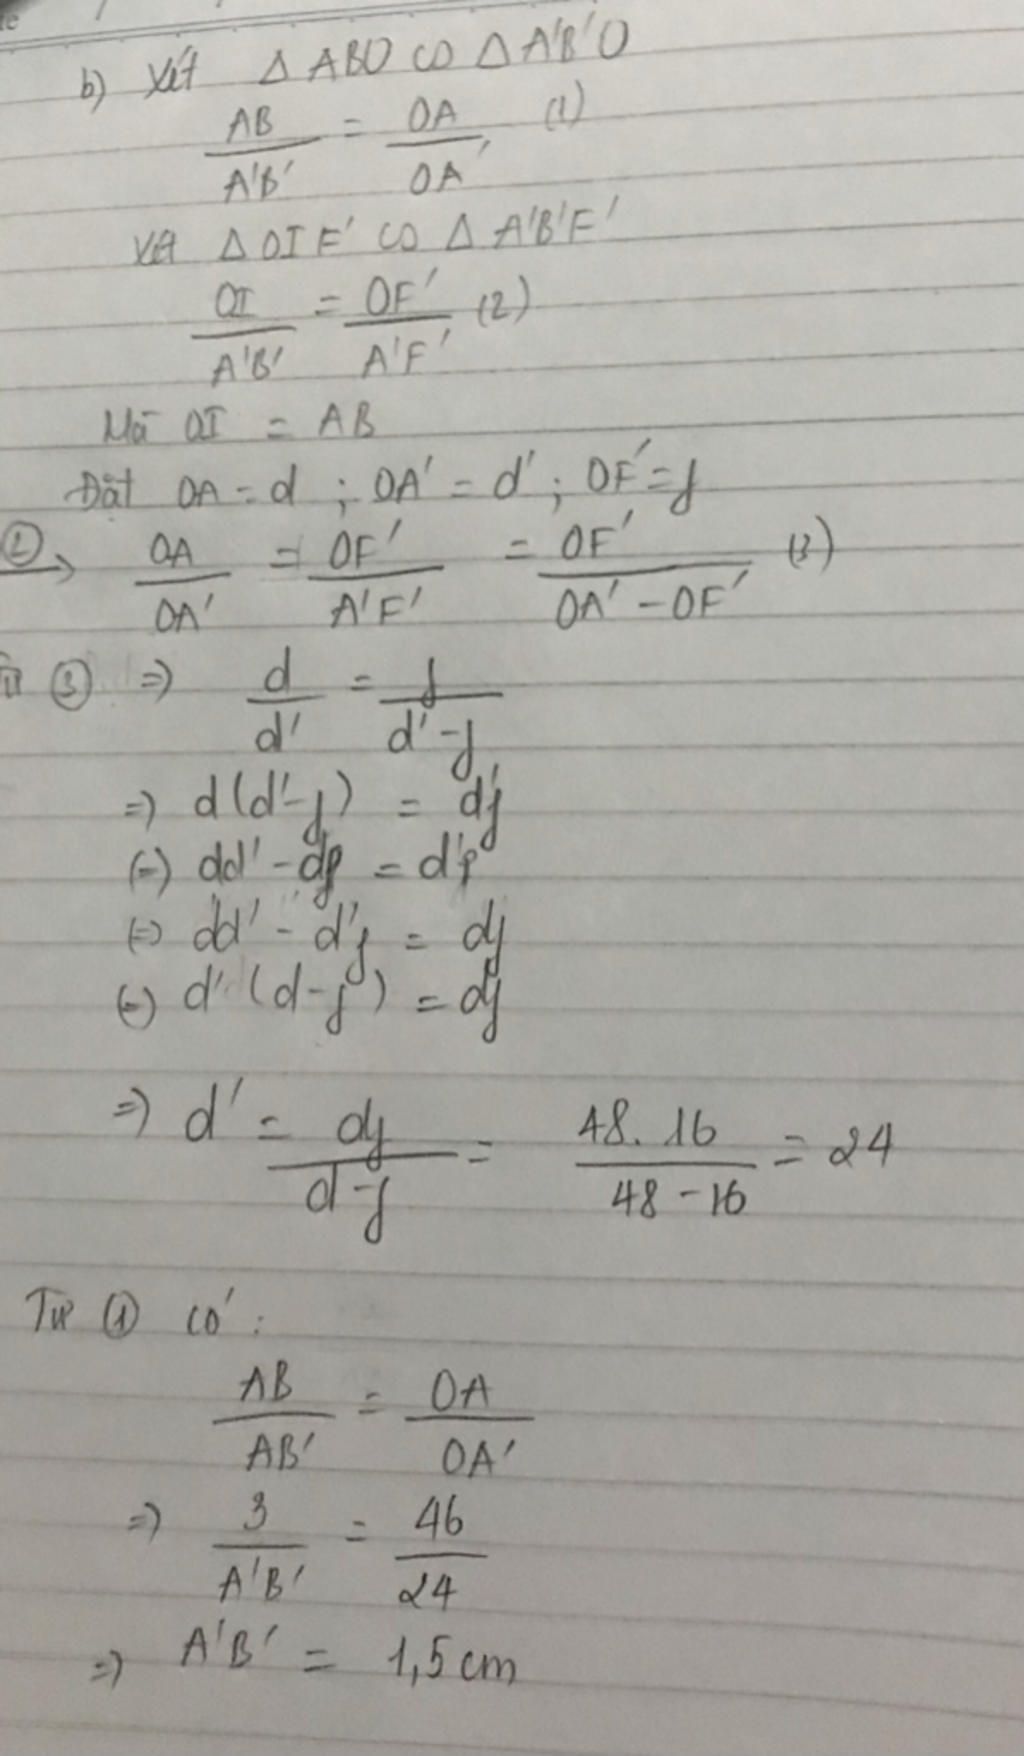 b) Xét Δ ABO ∽ Δ A'B'O
AB/A'B' = OA/OA' (1)
Xét Δ OIF' ∽ Δ A'B'F'
OI/A'B' = OF'/A'F' (2)
Mà OI = AB
Đặt OA = d ; OA' = d' ; OF' = f
② → OA/OA' = OF'/A'F' = OF'/OA' - OF' (3)
③ => d/d' = f/d' - f
=> d(d' - f) = d'f
(=) dd' - df = d'f
(=) dd' - d'f = df
(=) d' (d - f) = df
=> d' = df/d - f = 48.16/48 - 16 = 24
Từ ① có :
AB/AB' = OA/OA'
=> 3/A'B' = 46/24
=> A'B' = 1,5 cm